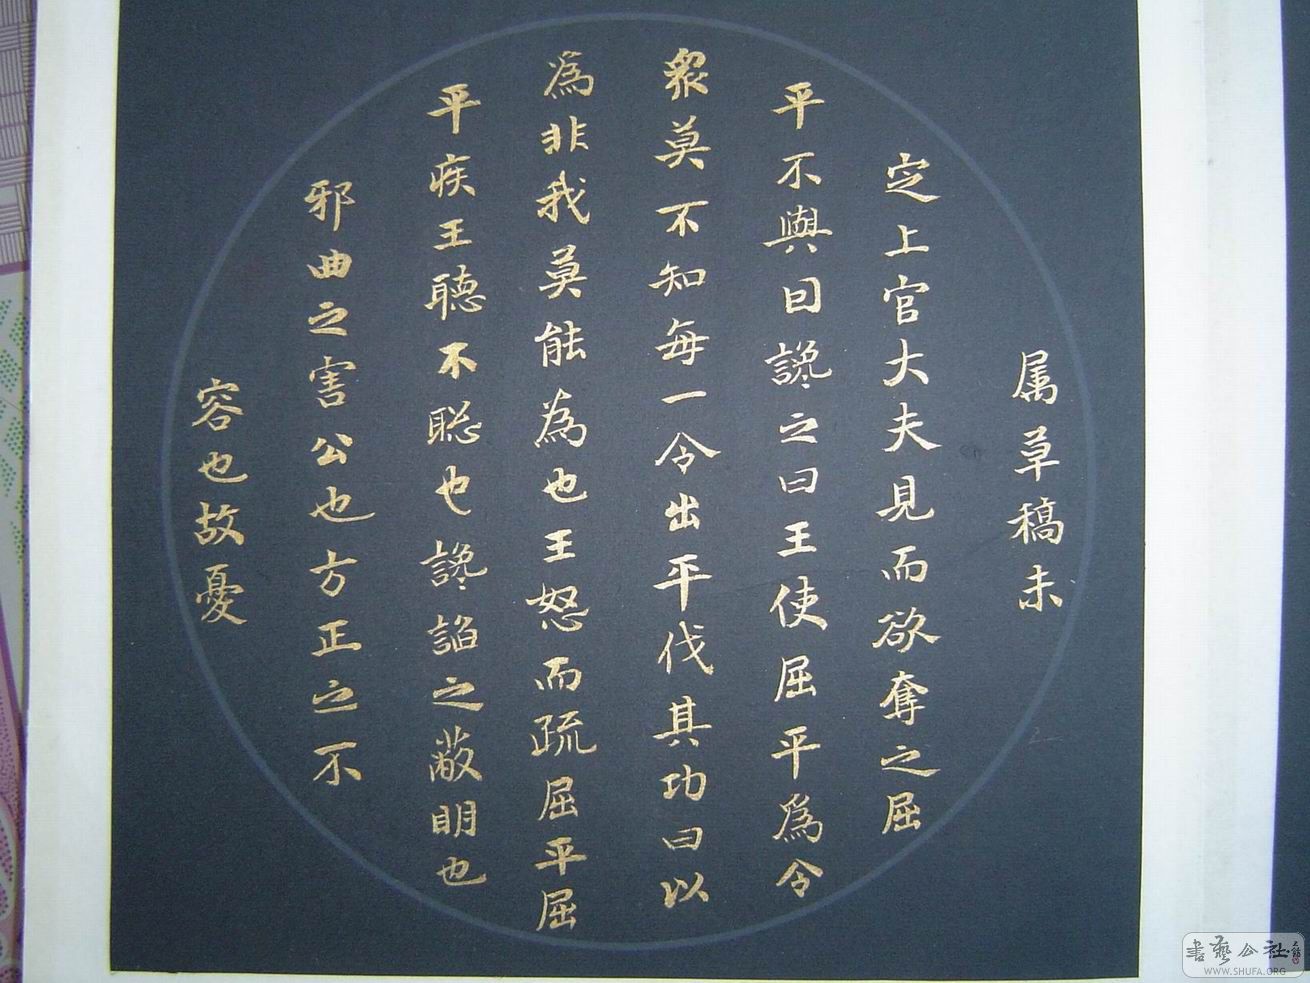 属草稿未
定上官大夫見而欲奪之屈
平不與因讒之曰王使屈平為令
眾莫不知每一令出平伐其功曰以
為非我莫能為也王怒而疏屈平屈
平疾王聽不聡也讒諂之蔽明也
邪曲之害公也方正之不
容也故憂
書藝公社
WWW.SHUFA.ORG